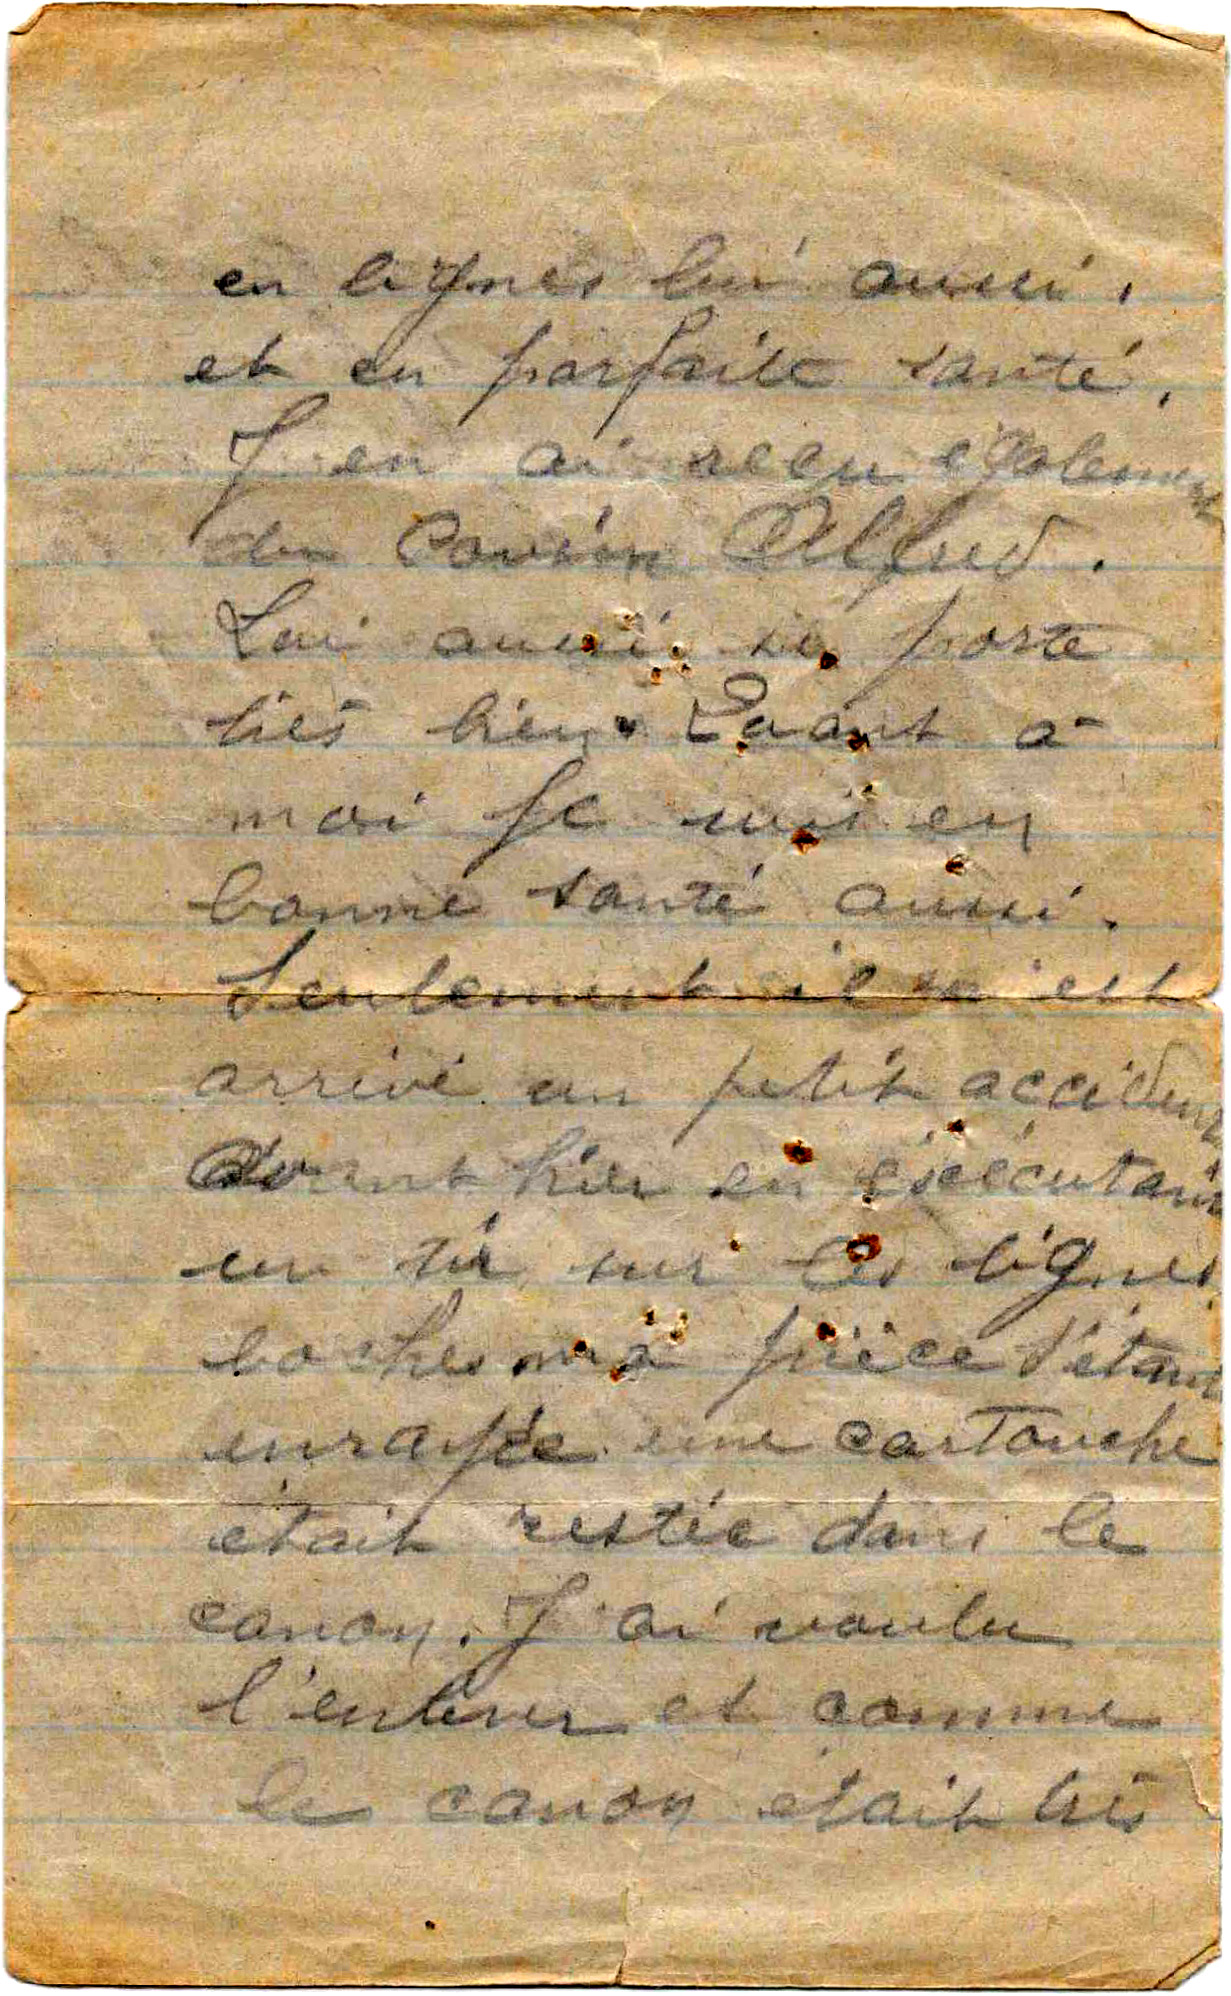 en lignes lui aussi.
et en parfaite santé.
J'en ai reçu également
du Cousin Alfred.
Lui aussi se porte
très bien. Quant à
moi Je suis en
bonne santé aussi.
Seulement il m'est
arrivé un petit accident
Avant hier en éxécutant
un tir sur les lignes
boches ma pièce s'étant
enrayée une cartouche
était restée dans le
canon. J'ai voulu
l'enlever et comme
le canon était très